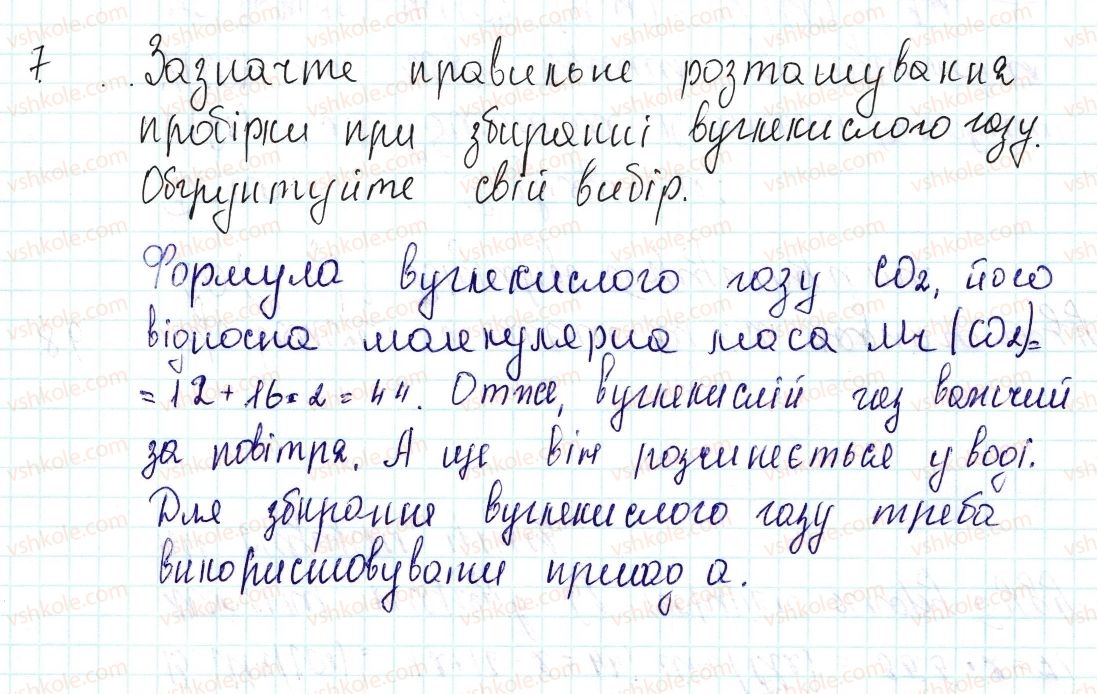 7. Зазначте правильне розташування
пробірки при збиранні вуглекислого газу.
Обґрунтуйте свій вибір.
Формула вуглекислого газу CO2, його
відносна молекулярна маса Mr (CO2)=
=12+16·2=44. Отже, вуглекислий газ важчий
за повітря. А ще він розчиняється у воді.
Для збирання вуглекислого газу треба
використовувати прилад а.